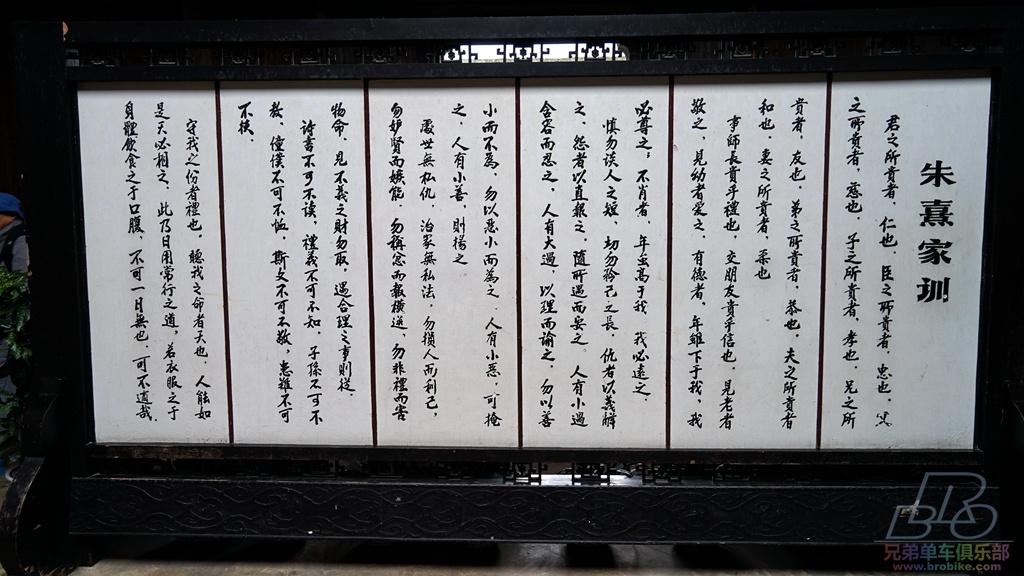 朱熹家训
君之所貴者，仁也，臣之所貴者，忠也，父
之所貴者，慈也，子之所貴者，孝也，兄之所
貴者，友也，弟之所貴者，恭也，夫之所貴者
和也，妻之所貴者，柔也
事師長貴乎禮也，交朋友貴乎信也，見老者
敬之，見幼者愛之，有德者，年雖下于我，我
必尊之；不肖者，年虽高于我，我必遠之
慎勿谈人之短，切勿矜己之長，仇者以義解
之，怨者以直報之，随所遇而安之。人有小過
含容而忍之，人有大過，以理而諭之，勿以善
小而不為，勿以惡小而為之，人有小惡，可掩
之，人有小善，則揚之
處世無私仇，治家無私法，勿損人而利己，
勿妒賢而嫉能，勿稱忿而報横逆，勿非禮而害
物命，見不義之財勿取，遇合理之事則從，
诗書不可不读，禮義不可不知，子孫不可不
教，僮僕不可不恤，斯文不可不敬，患難不可
不扶，
守我之份者禮也，聽我之命者天也，人能如
是天必相之，此乃日用常行之道，若衣服之于
身體飲食之于口腹，不可一日無也，可不慎哉
BRO
兄弟单车俱乐部
www.brobike.com